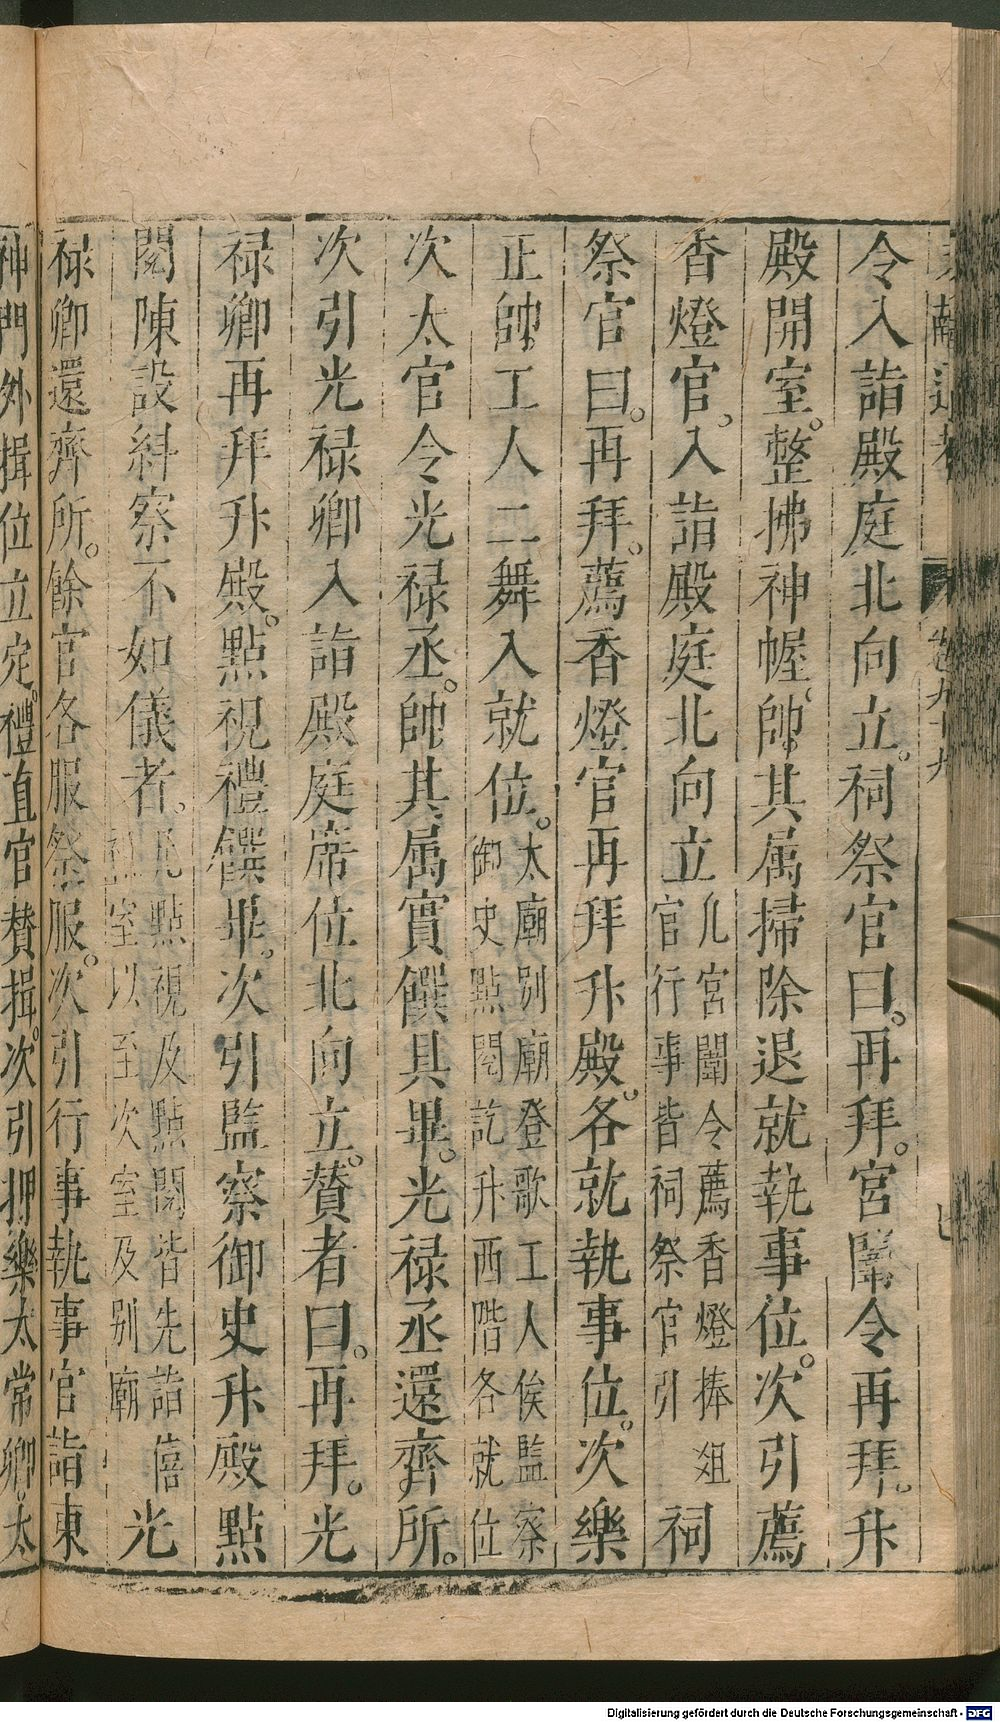 文獻通考 卷九十九 七
令入詣殿庭北向立。祠祭官曰。再拜。宮闈令再拜。升
殿開室。整拂神幄。帥其属掃除退就執事位。次引薦
香燈官。入詣殿庭北向立凡宮闈令薦香燈捧俎官行事皆祠祭官引祠
祭官曰。再拜。薦香燈官再拜升殿。各就執事位。次樂
正帥工人二舞入就位。太廟别廟登歌工人俟監察御史點閱訖升西階各就位
次太官令光禄丞。帥其属實饌具畢。光禄丞還齊所。
次引光禄卿入詣殿庭席位北向立。贊者曰。再拜。光
禄卿再拜升殿。點視禮饌畢。次引監察御史升殿點
閱陳設糾察不如儀者。凡點視及點閱皆先詣僖祖室以至次室及别廟光
禄卿還齊所。餘官各服祭服。次引行事執事官詣東
神門外揖位立定。禮直官贊揖。次引押樂太常卿。太
Digitalisierung gefördert durch die Deutsche Forschungsgemeinschaft - DFG